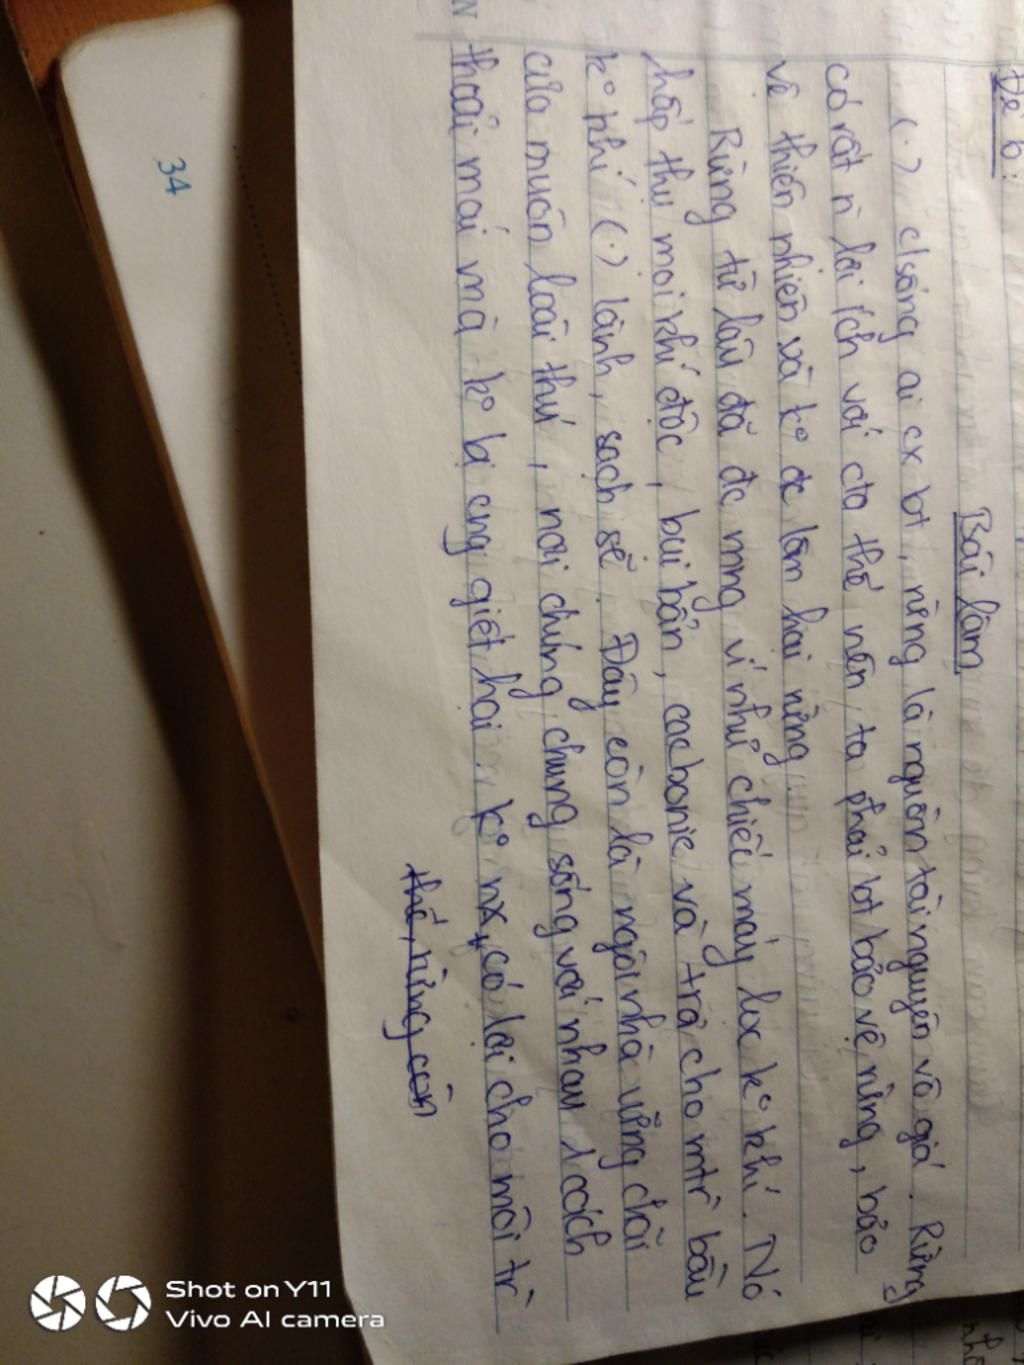 Đề 6:
Bài làm
(.) c/sống ai cx bt, rừng là nguồn tài nguyên vô giá. Rừng
có rất n̄ lợi ích với cta thế nên ta phải bt bảo vệ rừng, bảo
vệ thiên nhiên và kº đc làm hại rừng.
Rừng từ lâu đã đc mng ví như chiếc máy lọc kº khí. Nó
hấp thụ mọi khí độc, bụi bẩn, cacbonic và trả cho mtr̀ bầu
kº khí (.) lành, sạch sẽ. Đây còn là ngôi nhà vững chãi
của muôn loài thú, nơi chúng chung sống với nhau 1 cách
thoải mái mà kº bị cng giết hại. kº nx, có lợi cho môi tr̀
thế, rừng còn
34
Shot on Y11
Vivo AI camera